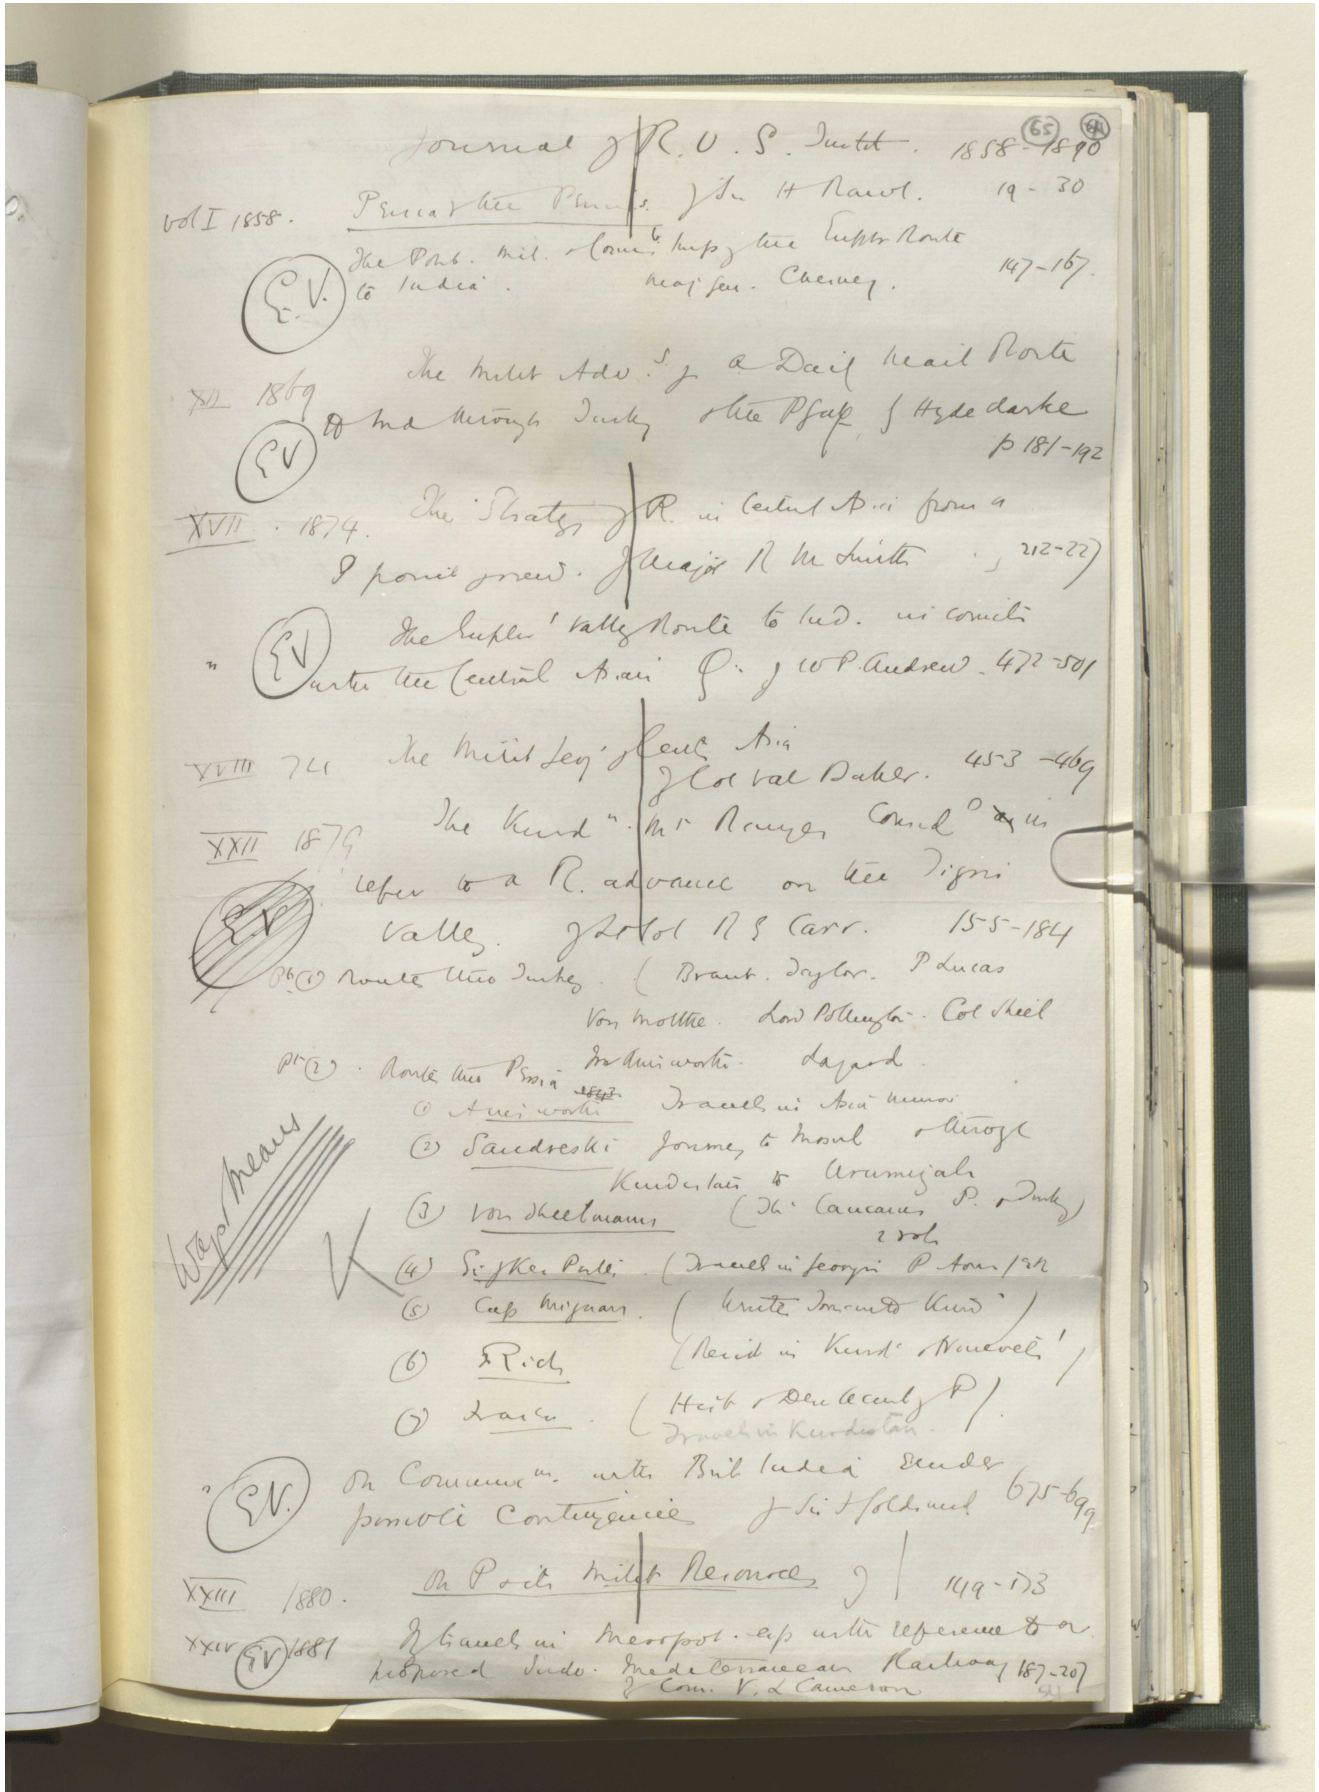 65
Journal of R. U. S. Instit. 1858-1890
Vol I 1858. Persia & the Persians. by Sir H Rawl. 19-30
E.V. The Polit. Mil. & Comm. Imp of the Euphr Route
to India. Maj Gen. Chesney. 147-167.
XII 1869 The Milit Adv.s of a Daily Mail Route
EV to Ind through Turkey & the P Gulf, by Hyde Clarke
p 181-192
XVII. 1874. The Strategy of R. in Central Asia from a
P point of view. by Major R M Smith 212-227
EV The Euphr' Valley Route to Ind. in
" with the Central Asian Q. by W P. Andrew. 472-501
XVIII 74 The Milit Geog' of Cent Asia
by Col Val Baker. 453-469
XXII 1879 The Kurdn. Mt Ranges Consid in
EV refer to a R. advance on the Tigris
Valley. by Lt Col R E Carr. 155-184
Pt (1) Routes thro Turkey. (Brant. Taylor. P Lucas
Von Moltke. Lord Pollington. Col Sheil
Pt (2). Routes thro Persia Ainsworth. Layard.
1843
(1) Ainsworth Travels in Asia Minor
(2) Sandreski Journey to Mosul & through
Kurdistan to Urumiyah
Ways & Means
(3) Von Thielmann (The Caucasus P. & Turkey)
2 vols
(4) Sir R Ker Porter. (Travels in Georgia P
(5) Cap Mignan. (Winter Journey to Kurd')
(6) Rich (Resid in Kurd' & Nineveh')
(7) Fraser. (Hist & Descr Account of P)
Travels in Kurdistan.
" E.V. On Communn. with Brit India under
possible Contingencies by Sir F Goldsmid 675-699
XXIII 1880. On P & its Milit Resources by 149-173
XXIV EV 1881 Of travels in Mesopot. esp with reference to a
proposed Indo-Mediterranean Railway 187-207
by Com. V. L Cameron